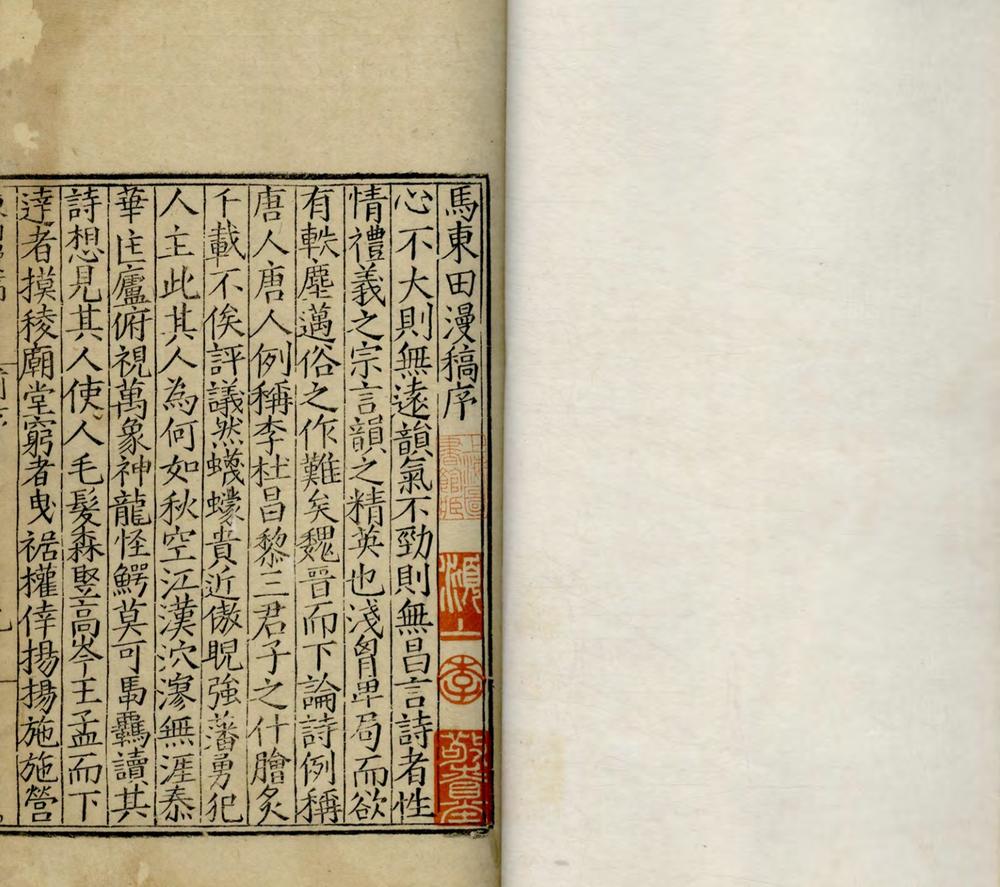 馬東田漫稿序
上海圖書館藏
心不大則無遠韻氣不勁則無昌言詩者性
情禮義之宗言韻之精英也淺胷卑局而欲
有軼塵邁俗之作難矣魏晉而下論詩例稱
唐人唐人例稱李杜昌黎三君子之什膾炙
千載不俟評議然蠛蠓貴近傲睨強藩勇犯
人主此其人為何如秋空江漢泬漻無涯泰
華匡廬俯視萬象神龍怪鰐莫可馽羈讀其
詩想見其人使人毛髮森竪高岑王孟而下
達者摸稜廟堂窮者曳裾權倖揚揚施施營